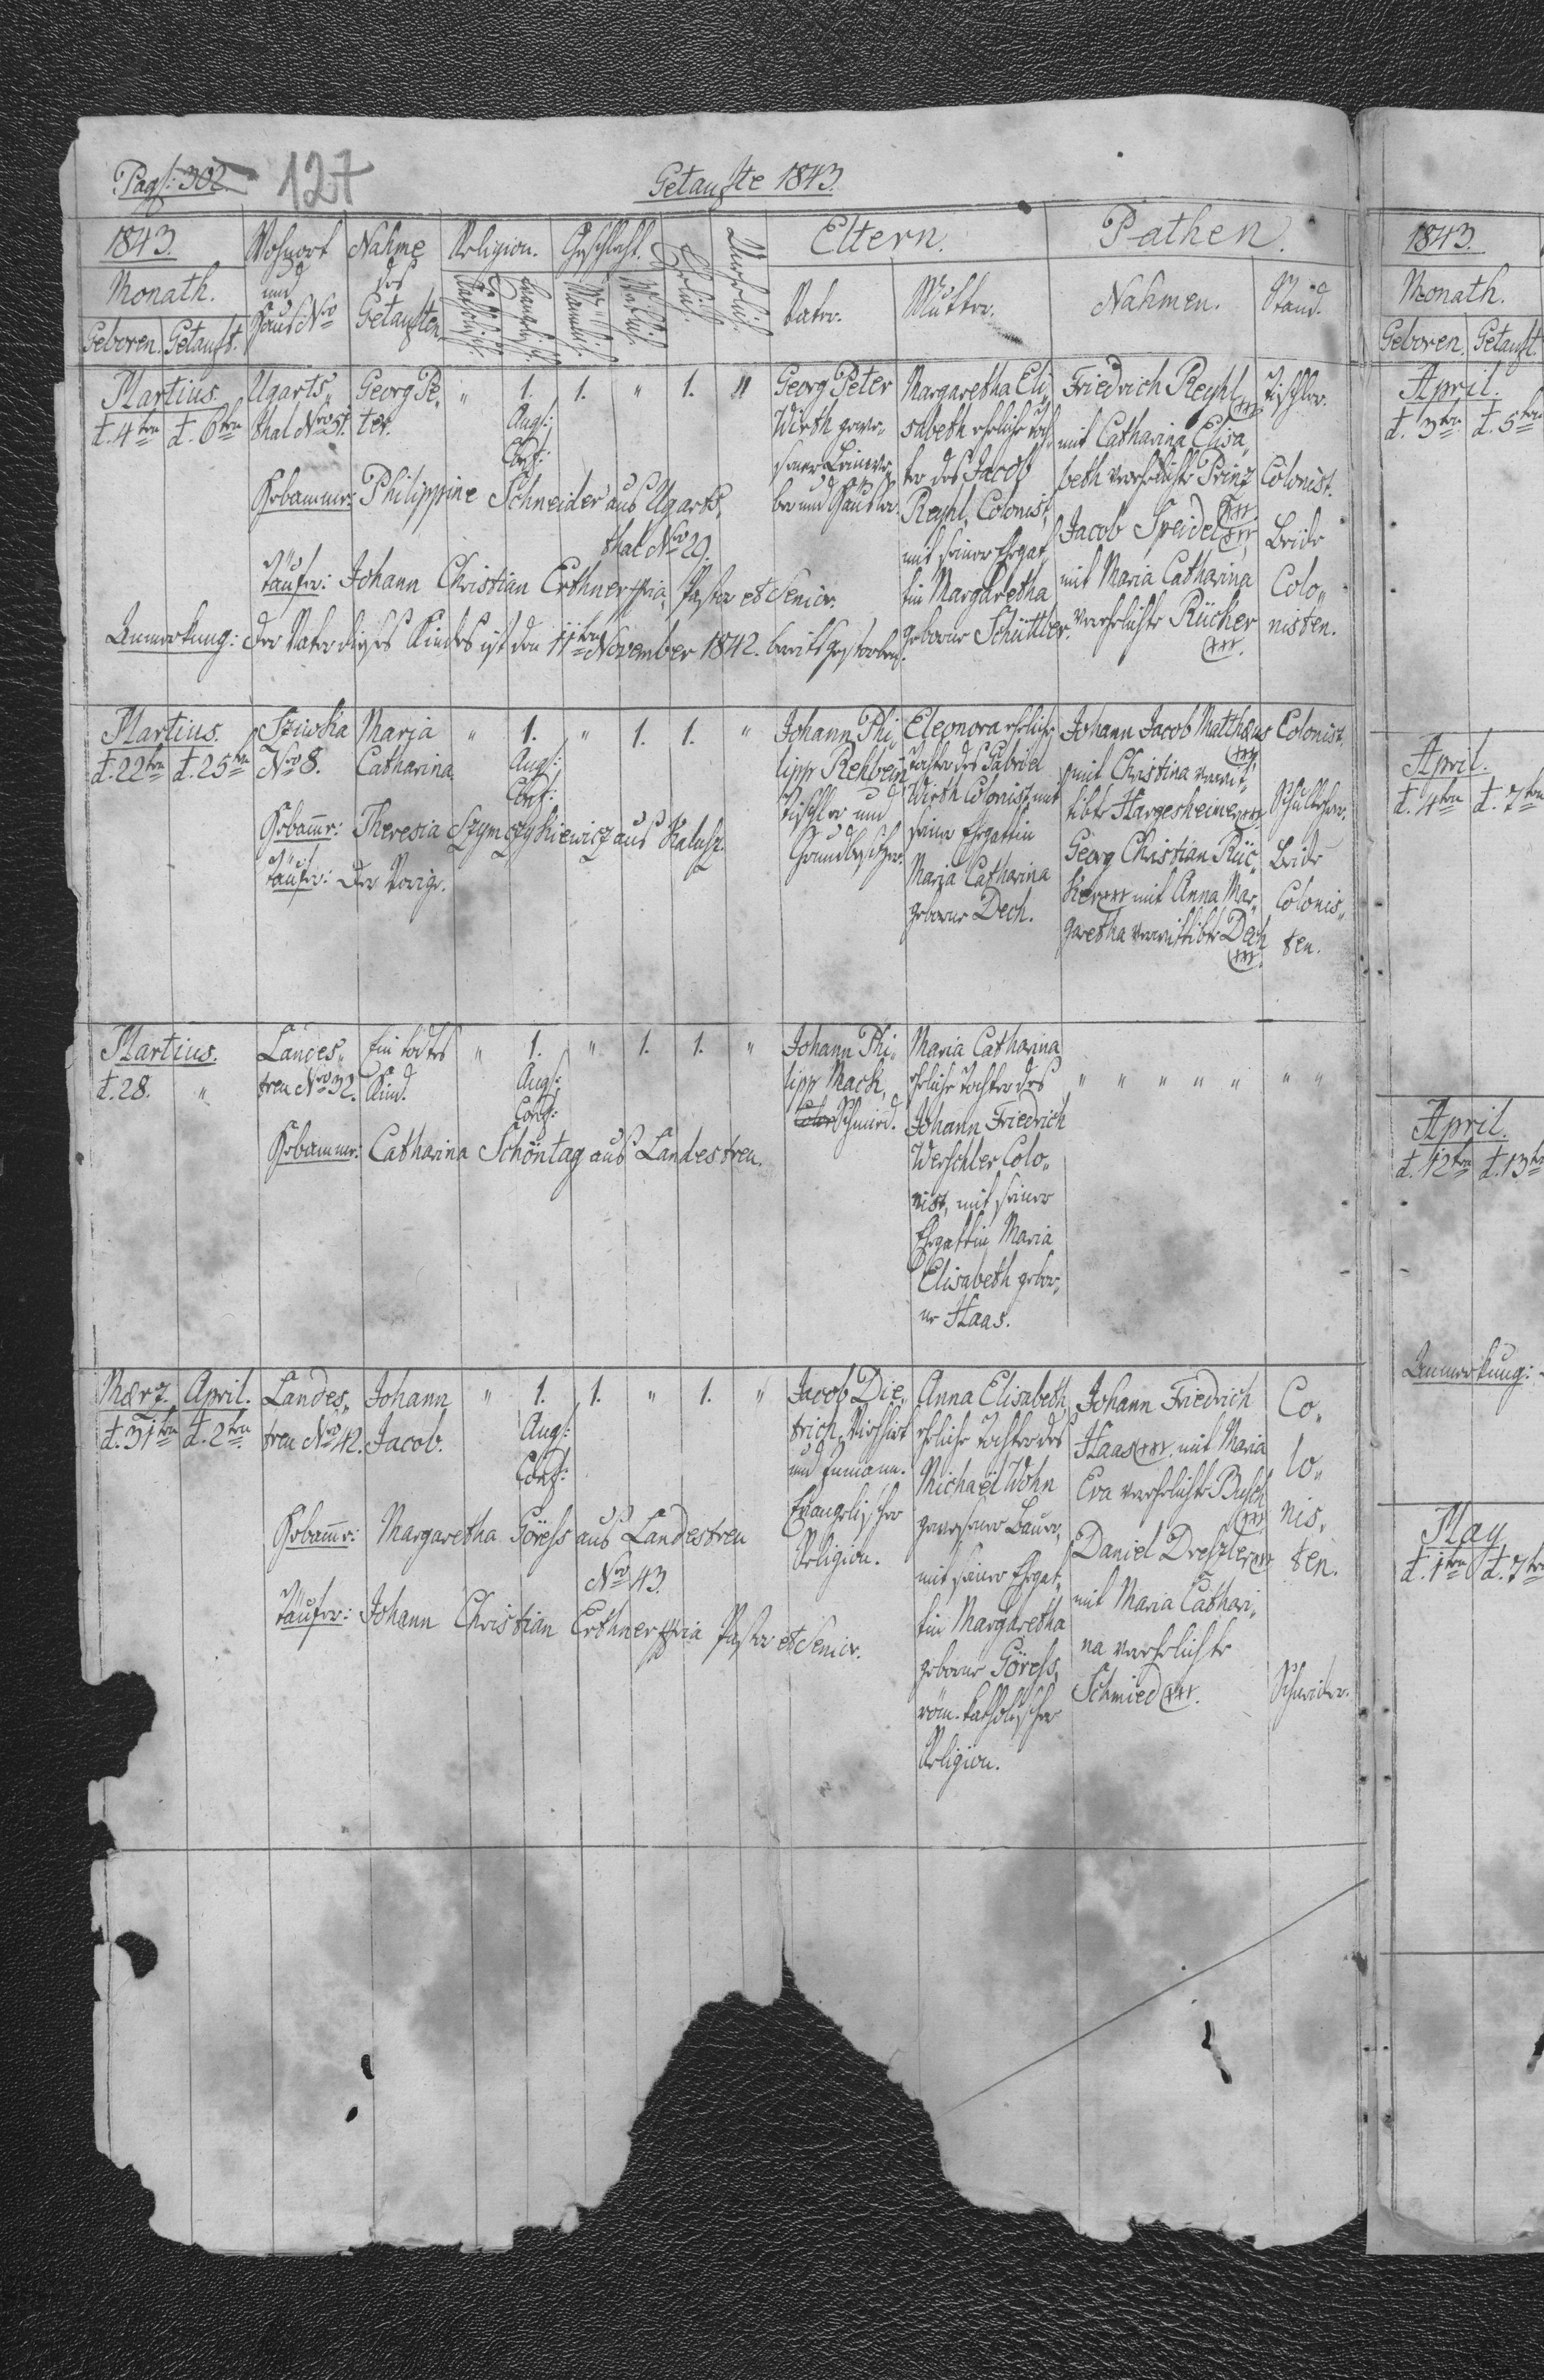 Pag: 302. 127
Getaufte 1843.
1843.
Monath.
Geboren. Getauft.
Wohnort
und
Haus Nro
Nahme
des
Getauften.
Religion.
Katholisch.
Evangelisch.
Geschlecht.
Mänlich.
Weiblich.
Ehelich.
Unehelich.
Eltern.
Vater.
Mutter.
Pathen.
Nahmen.
Stand.
Martius.
d. 4ten d. 6ten
Ugarts„
thal Nro 31.
Georg Pe„
ter.
" 1. 1. " 1. "
Augs:
Conf:
Georg Peter
Wirth gewe„
sener Leinwe„
ber und Häusler.
Margaretha Eli„
sabeth eheliche Toch„
ter des Jacob
Reyhl, Colonist,
mit seiner Ehegat„
tin Margaretha
geborne Schüttler.
Friedrich Reyhl
xxx
mit Catharina Elisa„
beth verehelichte Prinz
xxx.
Jacob Speidel xxx
mit Maria Catharina
verehelichte Rücher
xxx.
Tischler.
Colonist.
Beide
Colo„
nisten.
Hebamme: Philippine Schneider aus Ugarts„
thal Nro 29.
Täufer: Johann Christian Erthner mpria, Pastor et Senior.
Anmerkung: Der Vater dieses Kindes ist den 11ten November 1842. bereits gestorben.
Martius.
d. 22ten d. 25ten
Sziwka
Nro 8.
Maria
Catharina
" 1. " 1. 1. "
Augs:
Conf:
Johann Phi„
lipp Rehbein,
Tischler und
Grundbesitzer.
Eleonora eheliche
Tochter des Gabriel
Wirth Colonist mit
seiner Ehegattin
Maria Catharina
geborne Dech.
Johann Jacob Matthæus
xxx
mit Christina verwit„
tibte Hargesheimer xxx.
Georg Christian Rüc„
ker xxx mit Anna Mar„
garetha verwittibte Dech
xxx.
Colonist.
Schullehrer.
Beide
Colonis„
ten.
Hebamme: Theresia Szymczykiewicz aus Kalusz.
Täufer: Der Vorige.
Martius.
d. 28. "
Landes„
treu Nro 32.
Ein todtes
Kind.
" 1. " 1. 1. "
Augs:
Conf:
Johann Phi„
lipp Mack,
Schmied.
Maria Catharina
eheliche Tochter des
Johann Friedrich
Werschler Colo„
nist, mit seiner
Ehegattin Maria
Elisabeth gebor„
ne Haas.
" " " " " " "
Hebamme: Catharina Schöntag aus Landestreu.
Mærz. April.
d. 31ten d. 2ten
Landes„
treu Nro 42.
Johann
Jacob.
" 1. 1. " 1. "
Augs:
Conf:
Jacob Die„
trich, Viehhirt
und Inmann.
Evangelischer
Religion.
Anna Elisabeth
eheliche Tochter des
Michaël Wohn
gewesener Bauer,
mit seiner Ehegat„
tin Margaretha
geborne Göress,
röm. katholischer
Religion.
Johann Friedrich
Haas xxx. mit Maria
Eva verehelichte Busch
xxx
Daniel Drexler xxx
mit Maria Cathari„
na verehelichte
Schmied xxx.
Co„
lo„
nis„
ten.
Schneider.
Hebamme: Margaretha Göress aus Landestreu
Nro 43.
Täufer: Johann Christian Erthner mpria Pastor et Senior.
1843.
Monath.
Geboren. Getauft.
April.
d. 3ten d. 5ten
April.
d. 4ten d. 7ten
April.
d. 12ten d. 13ten
Anmerkung:
May
d. 1ten d. 7ten